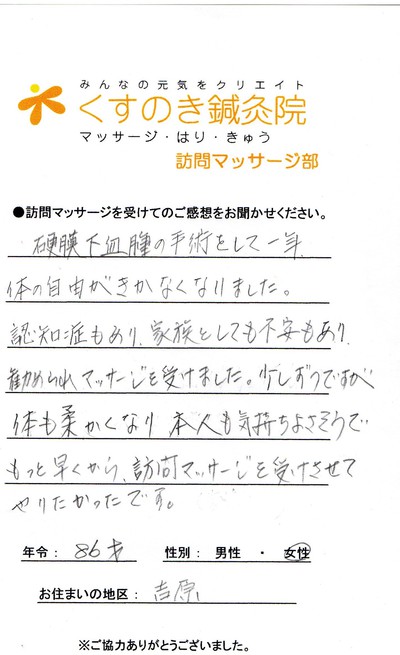 みんなの元気をクリエイト
くすのき鍼灸院
マッサージ・はり・きゅう
訪問マッサージ部
●訪問マッサージを受けてのご感想をお聞かせください。
硬膜下血腫の手術をして一年
体の自由がきかなくなりました。
認知症もあり、家族としても不安もあり
勧められマッサージを受けました。少しずつですが
体も柔かくなり 本人も気持ちよさそうで
もっと早くから、訪問マッサージを受けさせて
やりたかったです。
年令： 86才 性別： 男性 ・ 女性
お住まいの地区： 吉原
※ご協力ありがとうございました。